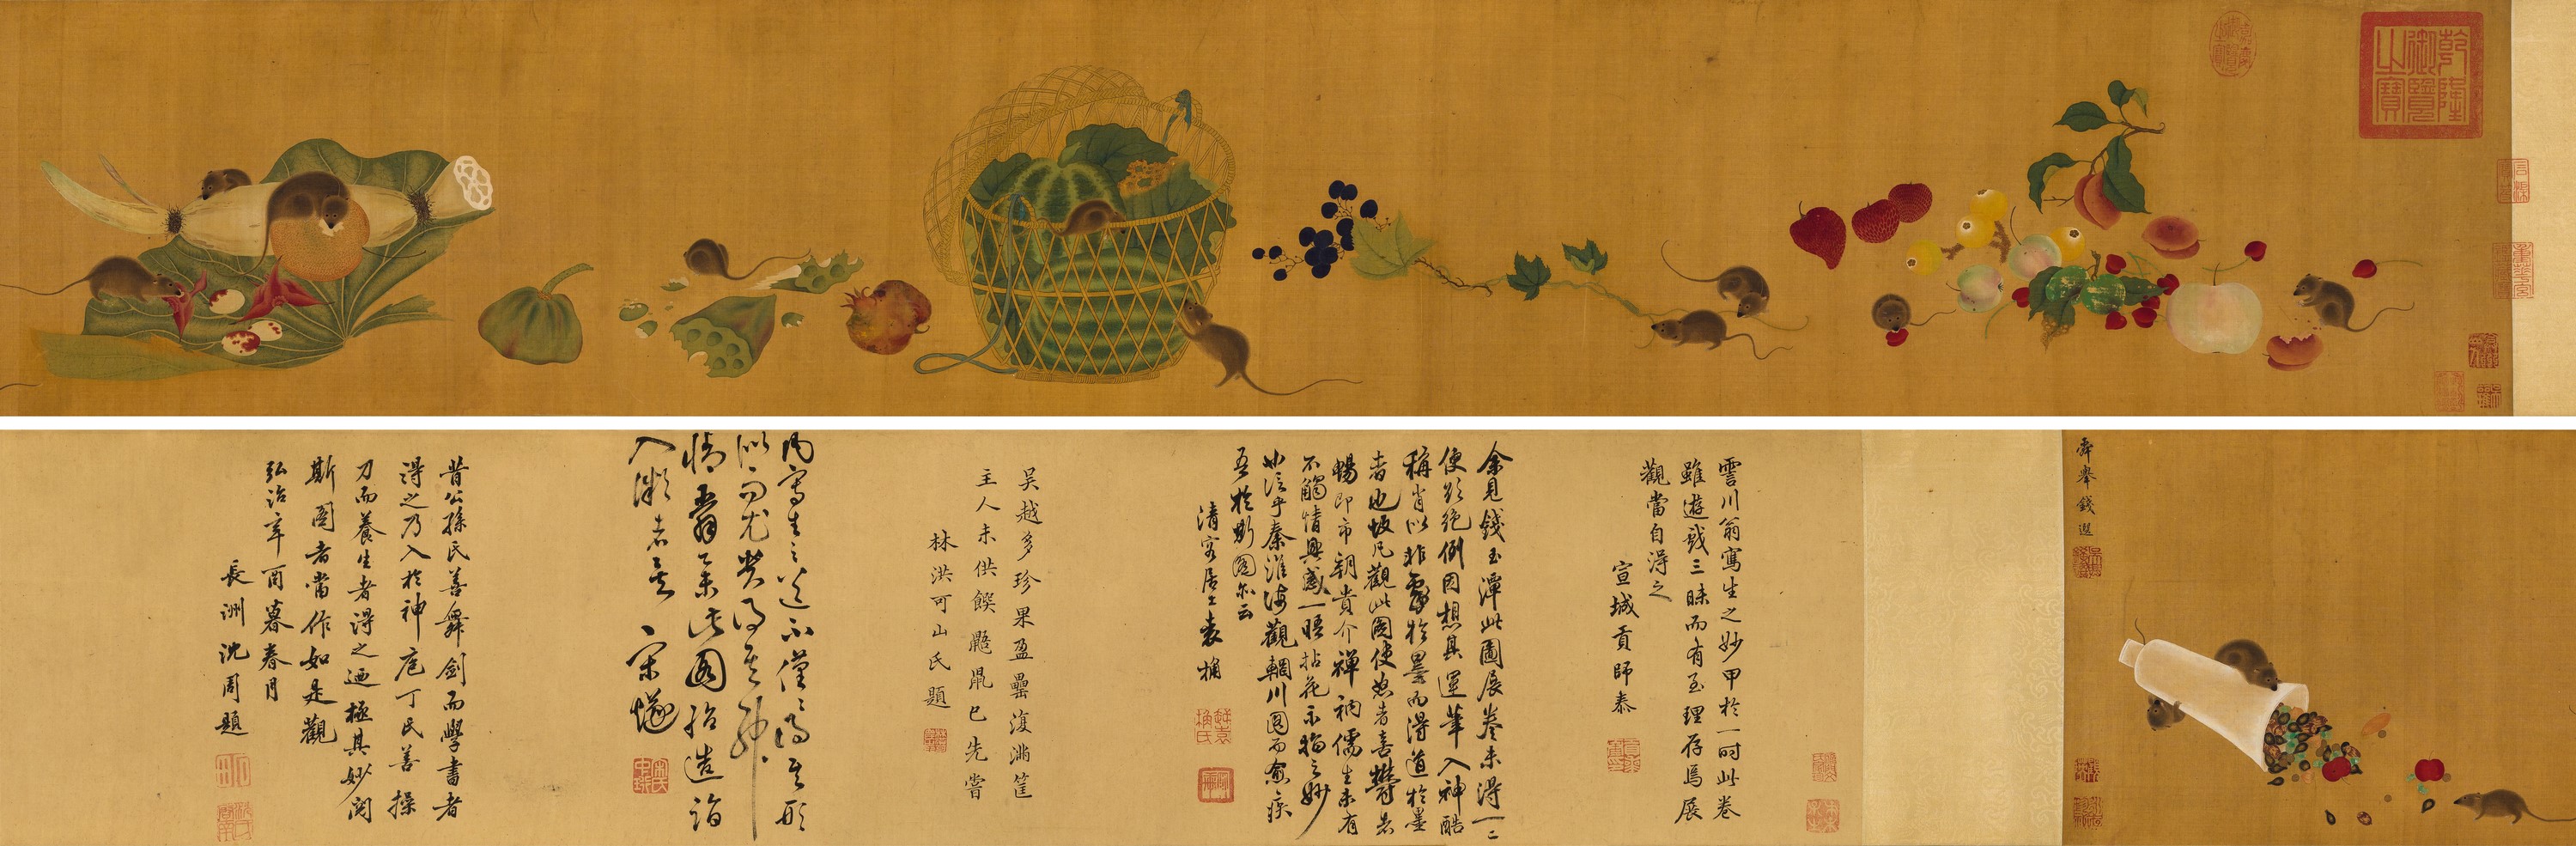 乾隆御覽之寶
舜舉錢選
霅川翁寫生之妙甲於一時此卷
雖遊戲三昧而有至理存焉展
觀當自得之
宣城貢師泰
余見錢玉潭此圖展卷未得一二
便欲絕倒因想其運筆入神酷
稱肖似非寄於墨而得道於墨
者也故凡觀此圖使怒者喜鬱者
暢即市朝貴介禪衲儒生未有
不觸情興感一晤拈花示指之妙
信乎秦淮海觀輞川圖而愈疾
吾於斯圖亦云
清容居士袁桷
吳越多珍果盈罍復滿筐
主人未供饌鼷鼠已先嘗
林洪可山氏題
寫生之不僅僅得其形
似而尤貴得其神
翁此圖殆造詣
入微者矣 宋燧
昔公孫氏善舞劍而學書者
得之乃入於神庖丁氏善操
刀而養生者得之迺極其妙閱
斯圖者當作如是觀
弘治辛酉暮春月
長洲沈周題